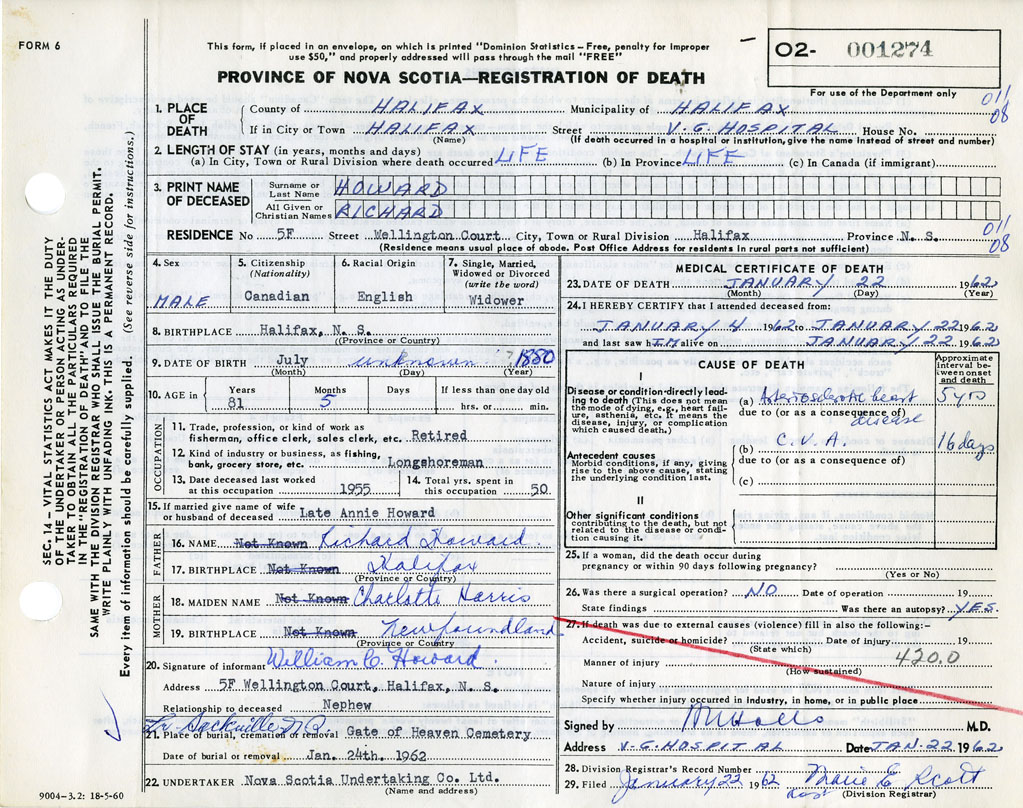 FORM 6
This form, if placed in an envelope, on which is printed "Dominion Statistics – Free, penalty for improper
use $50," and properly addressed will pass through the mail "FREE"
O2- 001274
For use of the Department only
PROVINCE OF NOVA SCOTIA—REGISTRATION OF DEATH
SEC. 14 – VITAL STATISTICS ACT MAKES IT THE DUTY
OF THE UNDERTAKER OR PERSON ACTING AS UNDER-
TAKER TO OBTAIN ALL THE PARTICULARS REQUIRED
IN THE "REGISTRATION OF DEATH" AND TO FILE THE
SAME WITH THE DIVISION REGISTRAR WHO SHALL ISSUE THE BURIAL PERMIT.
WRITE PLAINLY WITH UNFADING INK - THIS IS A PERMANENT RECORD.
Every item of information should be carefully supplied. (See reverse side for instructions.)
1. PLACE OF DEATH County of HALIFAX Municipality of HALIFAX 011 08
If in City or Town HALIFAX (Name) Street V.G. HOSPITAL House No.
(If death occurred in a hospital or institution, give the name instead of street and number)
2. LENGTH OF STAY (in years, months and days)
(a) In City, Town or Rural Division where death occurred LIFE (b) In Province LIFE (c) In Canada (if immigrant)
3. PRINT NAME OF DECEASED Surname or Last Name HOWARD
All Given or Christian Names RICHARD
RESIDENCE No 5F Street Wellington Court City, Town or Rural Division Halifax Province N. S. 011 08
(Residence means usual place of abode. Post Office Address for residents in rural parts not sufficient)
4. Sex MALE
5. Citizenship (Nationality) Canadian
6. Racial Origin English
7. Single, Married, Widowed or Divorced (write the word) Widower
8. BIRTHPLACE Halifax, N. S. (Province or Country)
9. DATE OF BIRTH July (Month) unknown (Day) 1880 (Year)
10. AGE in Years 81 Months 5 Days If less than one day old hrs. or min.
OCCUPATION
11. Trade, profession, or kind of work as
fisherman, office clerk, sales clerk, etc. Retired
12. Kind of industry or business, as fishing,
bank, grocery store, etc. Longshoreman
13. Date deceased last worked at this occupation 1955
14. Total yrs. spent in this occupation 50
15. If married give name of wife or husband of deceased Late Annie Howard
FATHER
16. NAME Not Known Richard Howard
17. BIRTHPLACE Not Known Halifax (Province or Country)
MOTHER
18. MAIDEN NAME Not Known Charlotte Harris
19. BIRTHPLACE Not Known Newfoundland (Province or Country)
20. Signature of informant William C. Howard
Address 5F Wellington Court, Halifax, N. S.
Relationship to deceased Nephew
Sackville
21. Place of burial, cremation or removal Gate of Heaven Cemetery
Date of burial or removal Jan. 24th. 1962
22. UNDERTAKER Nova Scotia Undertaking Co. Ltd.
(Name and address)
9004-3.2: 18-5-60
MEDICAL CERTIFICATE OF DEATH
23. DATE OF DEATH JANUARY 22 1962
(Month) (Day) (Year)
24. I HEREBY CERTIFY that I attended deceased from:
JANUARY 4 1962 to JANUARY 22 1962
and last saw him alive on JANUARY 22 1962
CAUSE OF DEATH
Approximate interval between onset and death
I
Disease or condition directly lead-
ing to death (This does not mean
the mode of dying, e.g., heart fail-
ure, asthenia, etc. It means the
disease, injury, or complication
which caused death.)
(a) Arteriosclerotic heart disease 5 yrs
due to (or as a consequence of)
(b) C.V.A. 16 days
due to (or as a consequence of)
(c)
Antecedent causes
Morbid conditions, if any, giving
rise to the above cause, stating
the underlying condition last.
II
Other significant conditions
contributing to the death, but not
related to the disease or condi-
tion causing it.
25. If a woman, did the death occur during
pregnancy or within 90 days following pregnancy?
(Yes or No)
26. Was there a surgical operation? NO Date of operation 19
State findings Was there an autopsy? YES.
27. If death was due to external causes (violence) fill in also the following:—
Accident, suicide or homicide? (State which) Date of injury 19
Manner of injury (How sustained) 420.0
Nature of injury
Specify whether injury occurred in industry, in home, or in public place
Signed by M.D.
Address V.G. HOSPITAL Date JAN. 22 1962
28. Division Registrar's Record Number
29. Filed January 22 1962 Marie E. Scott
(Division Registrar)